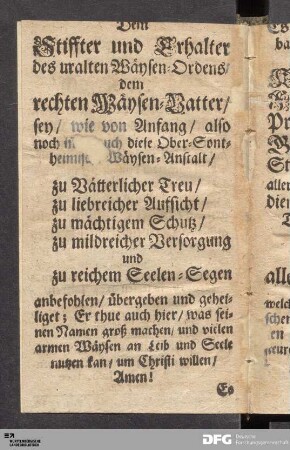 Dem
Stiffter und Erhalter
des uralten Wäysen-Ordens/
dem
rechten Wäysen-Vatter/
sey/ wie von Anfang/ also
noch diese Ober-Sont-
Wäysen-Anstalt/
zu Vätterlicher Treu/
zu liebreicher Aufsicht/
zu mächtigem Schutz/
zu mildreicher Versorgung
und
zu reichem Seelen-Segen
anbefohlen/ übergeben und gehei-
liget; Er thue auch hier/ was sei-
nen Namen groß machen/ und vielen
armen Wäysen an Leib und Seele
nutzen kan/ um Christi willen/
Amen!
Es
DFG